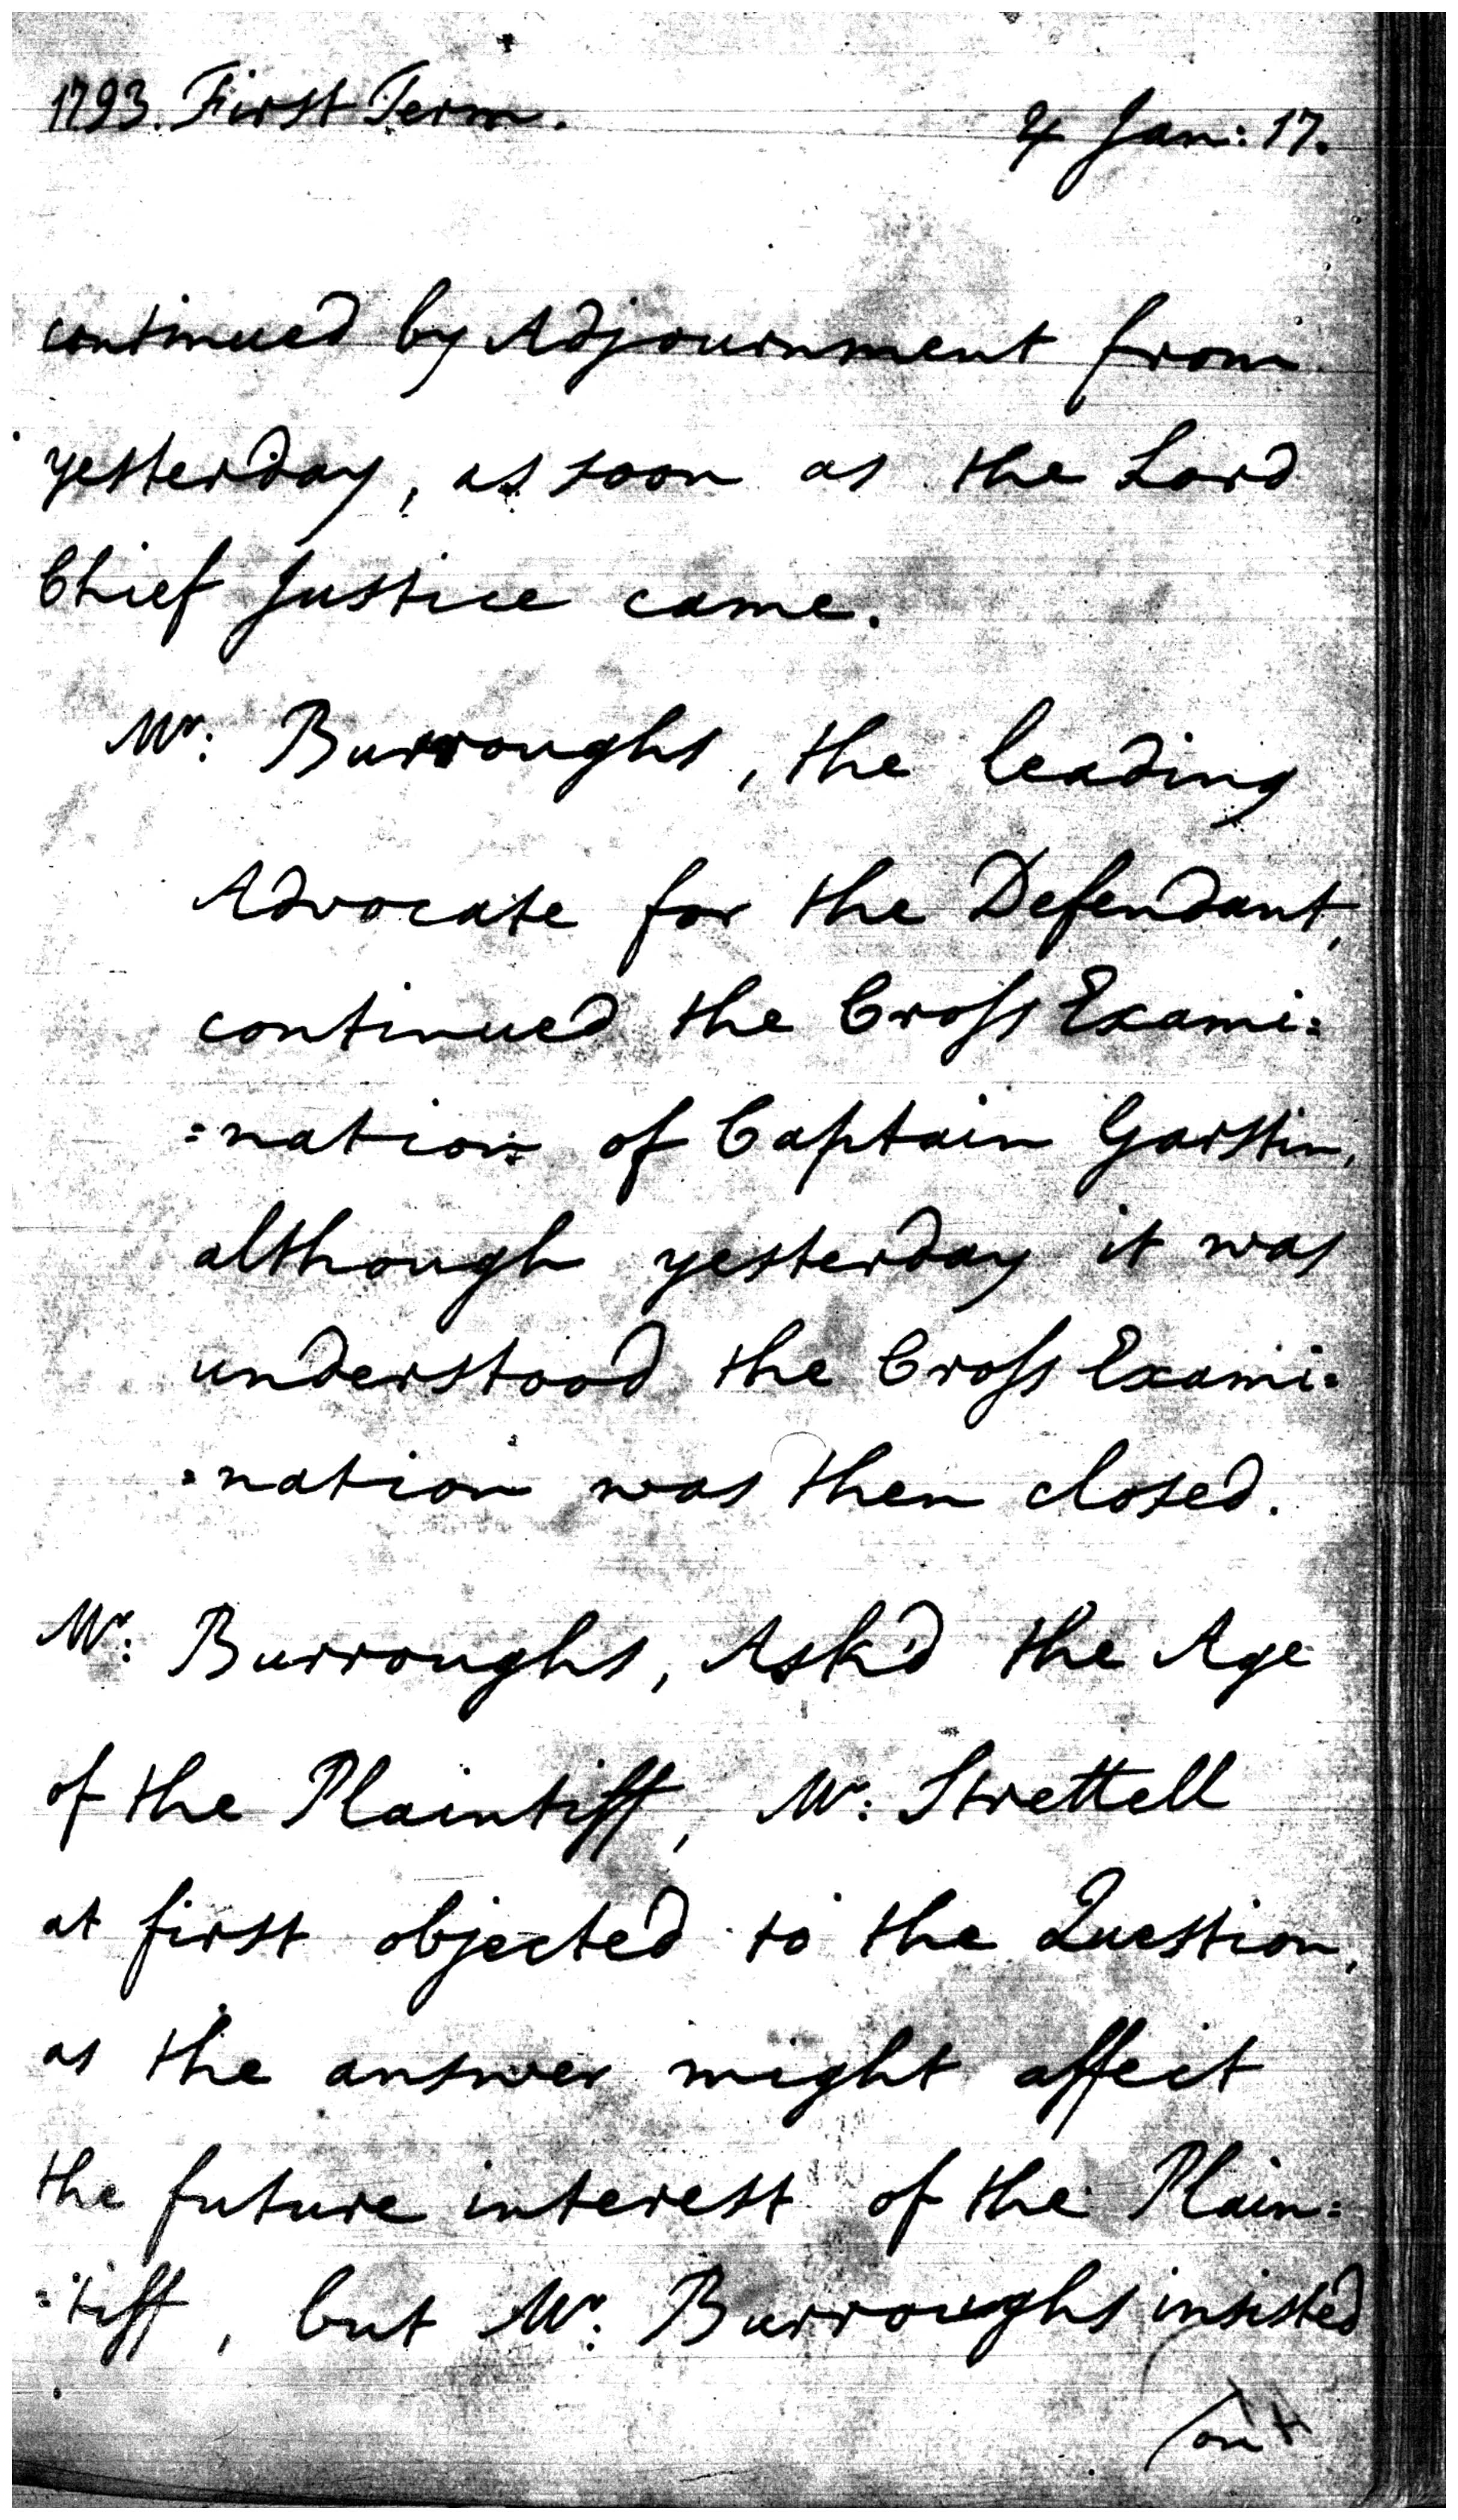 1793. First Term.
4 Jan: 17.
continued by Adjournment from
yesterday, as soon as the Lord
Chief Justice came.
Mr: Burroughs, the leading
Advocate for the Defendant,
continued the Cross Exami:
:nation of Captain Garstin,
although yesterday it was
understood the Cross Exami:
:nation was then closed.
Mr: Burroughs, Ask'd the Age
of the Plaintiff, Mr: Strettell
at first objected to the Question,
as the answer might affect
the future interest of the Plain:
:tiff, but Mr: Burroughs insisted